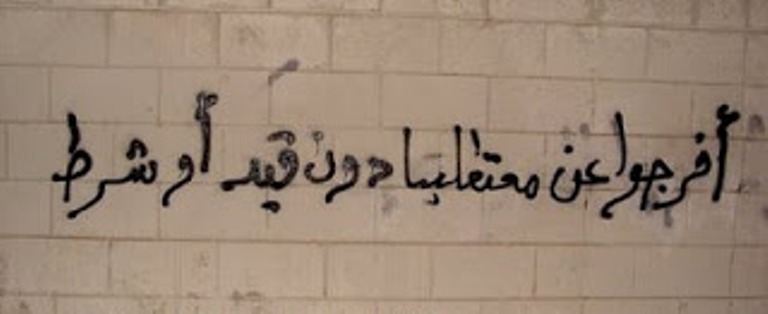 أفرجوا عن معتقلينا دون قيد أو شرط